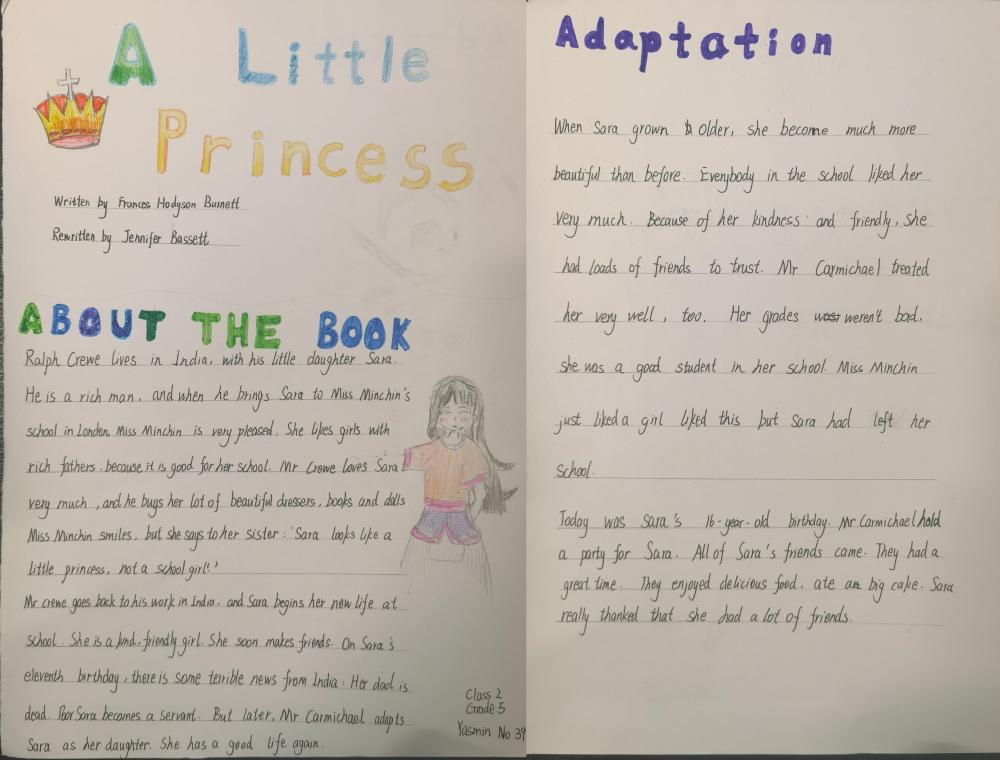 A Little
Princess
Written by Frances Hodgson Burnett
Rewritten by Jennifer Bassett
ABOUT THE BOOK
Ralph Crewe lives in India, with his little daughter Sara.
He is a rich man, and when he brings Sara to Miss Minchin's
school in London, Miss Minchin is very pleased. She likes girls with
rich fathers, because it is good for her school. Mr Crewe loves Sara
very much, and he buys her lot of beautiful dressers, books and dolls
Miss Minchin smiles, but she says to her sister: 'Sara looks like a
little princess, not a school girl!'
Mr crewe goes back to his work in India, and Sara begins her new life at
school. She is a kind, friendly girl. She soon makes friends. On Sara's
eleventh birthday, there is some terrible news from India: Her dad is
dead. Poor Sara becomes a servant. But later, Mr Carmichael adopts
Sara as her daughter. She has a good life again.
Class 2
Grade 5
Yasmin No 39
Adaptation
When Sara grown older, she become much more
beautiful than before. Everybody in the school liked her
very much. Because of her kindness and friendly, she
had loads of friends to trust. Mr Carmichael treated
her very well, too. Her grades weren't bad,
she was a good student in her school. Miss Minchin
just liked a girl liked this but Sara had left her
school.
Today was sara's 16-year-old birthday. Mr Carmichael hold
a party for Sara. All of Sara's friends came. They had a
great time. They enjoyed delicious food, ate a big cake. Sara
really thanked that she had a lot of friends.